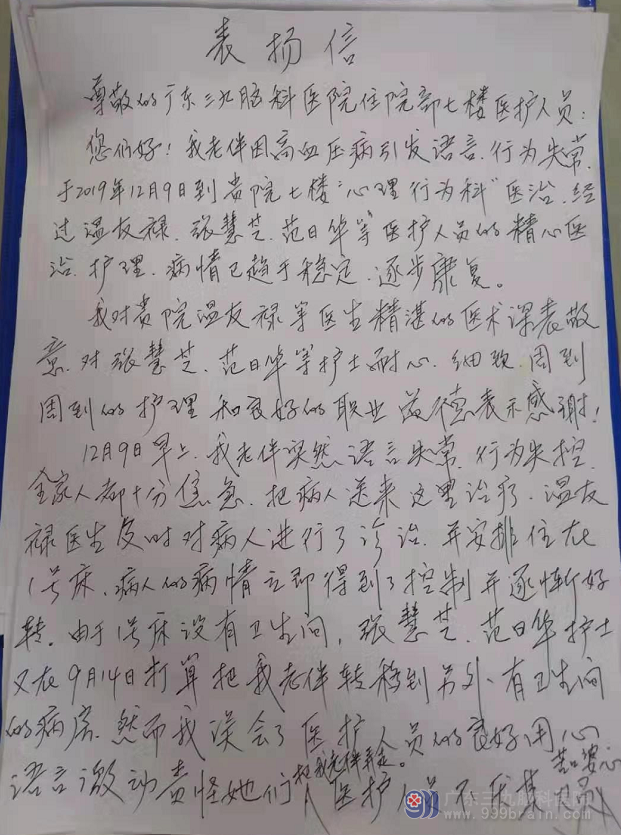 表扬信
尊敬的广东三九脑科医院住院部七楼医护人员:
您们好!我老伴因高血压病引发语言、行为失常,
于2019年12月9日到贵院七楼“心理行为科”医治.经
过温友禄、张慧芝、范日华等医护人员的精心医
治、护理、病情已趋于稳定、逐步康复。
我对贵院温友禄等医生精湛的医术深表敬
意.对张慧芝、范日华等护士耐心、细致、周到
周到的护理和良好的职业道德表示感谢!
12月9日早上、我老伴突然语言失常、行为失控.
全家人都十分焦急、把病人送来这里治疗、温友
禄医生及时对病人进行了诊治、并安排住在
1号床、病人的病情立即得到了控制并逐渐好
转、由于1号床没有卫生间,张慧芝、范日华护士
又在9月14日打算把我老伴转移到另外有卫生间
的病房、然而我误会了医护人员的良好用心
语言激动责怪她们 医护人员不厌其烦
苦口婆心
广东三九脑科医院
www.999brain.com